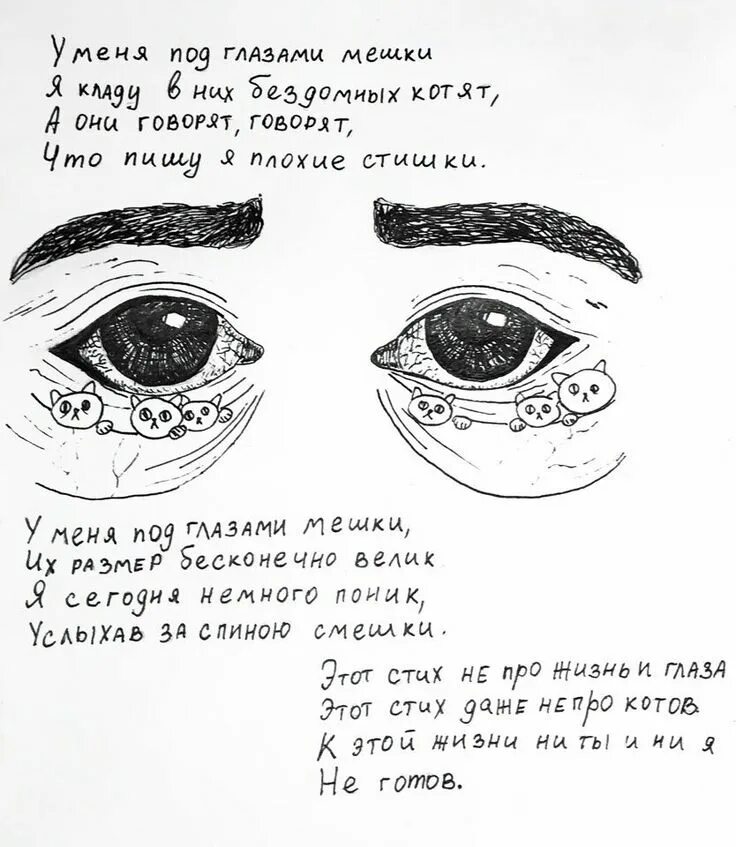 У меня под глазами мешки
Я кладу в них бездомных котят,
А они говорят, говорят,
Что пишу я плохие стишки.
У меня под глазами мешки,
Их размер бесконечно велик
Я сегодня немного поник,
Услыхав за спиною смешки.
Этот стих не про жизнь и глаза
Этот стих даже не про котов
К этой жизни ни ты и ни я
Не готов.